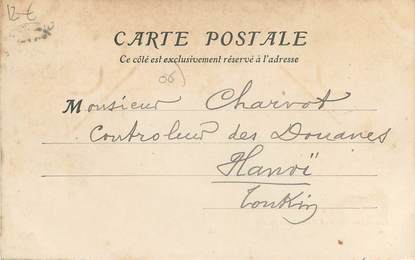 12 €
CARTE POSTALE
Ce côté est exclusivement réservé à l'adresse
(06)
Monsieur Charvot
Controleur des Douanes
Hanoï
Tonkin